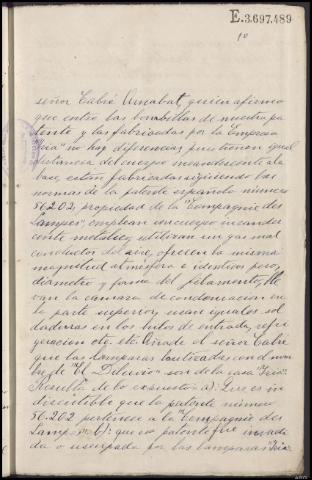 E.3.697.489
10
señor Cabré Arnabat, quien afirmo
que entre las bombillas de nuestra pa
tente y las fabricadas por la Empresa
"Iria" no hay diferencias pues tienen igual
distancia del cuerpo incandescente a la
base, estan fabricadas siguiendo las
normas de la patente española número
56.202 propiedad de la "Compagnie des
Lampes", emplean un cuerpo incandes
cente metalico, utilizan un gas mal
conductor del aire, ofrecen la misma
magnitud atmosfera e identico peso,
diametro y forma del filamento, lle
van la camara de condensacion en
la parte superior, usan iguales sol
daduras en los hilos de entrada, refri
geracion etc. etc. Añade el señor Cabré
que las lamparas bautizadas con el nom
bre de "El Diluvio" son de la casa "Iria".
Resulta de lo expuesto a): Que es in
discutible que la patente número
56.202 pertenece a la "Compagnie des
Lampes" b): que esa patente fue invadi
da o usurpada por las lamparas "Iria"